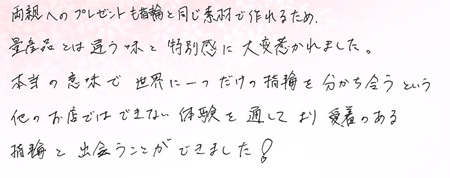 両親へのプレゼントも指輪と同じ素材で作れるため、
量産品とは違う味と特別感に大変惹かれました。
本当の意味で世界に一つだけの指輪を分かち合うという
他のお店ではできない体験を通してより愛着のある
指輪と出会うことができました!